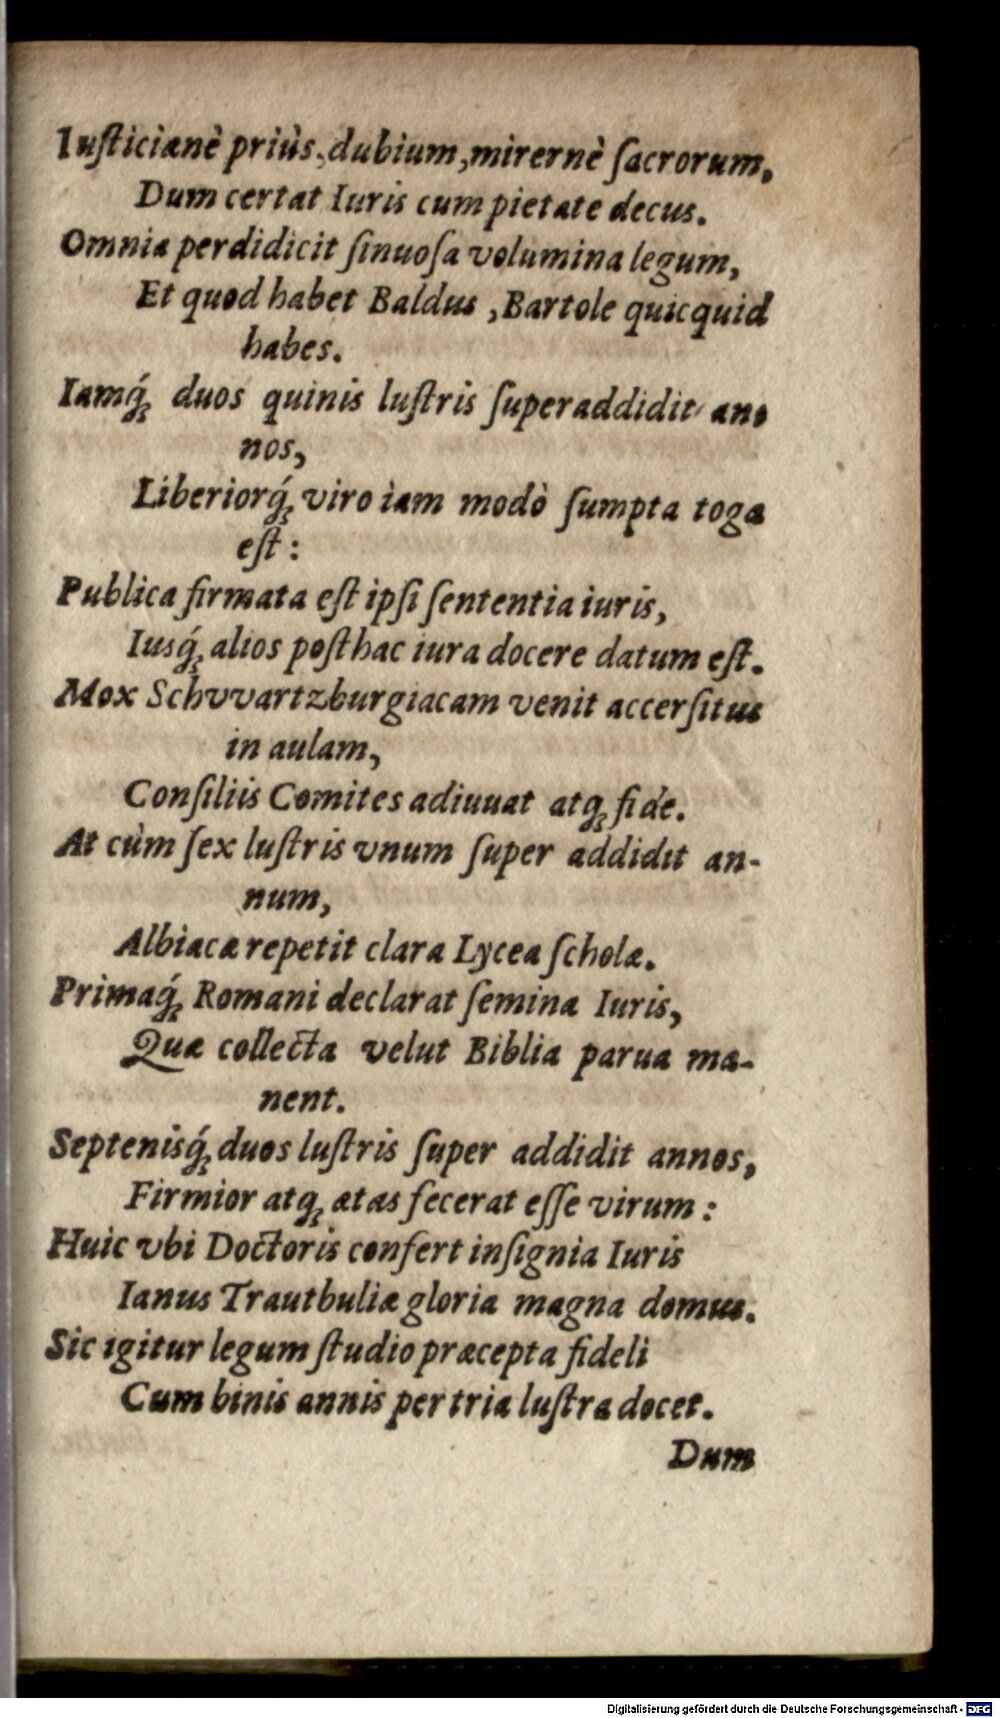 Iuſticianè priùs, dubium, mirernè ſacrorum,
Dum certat Iuris cum pietate decus.
Omnia perdidicit ſinuoſa volumina legum,
Et quod habet Baldus, Bartole quicquid
habes.
Iamq́; duos quinis luſtris ſuperaddidit an-
nos,
Liberiorq́; viro iam modò ſumpta toga
eſt:
Publica firmata eſt ipſi ſententia iuris,
Iusq́; alios poſthac iura docere datum eſt.
Mox Schvvartzburgiacam venit accerſitus
in aulam,
Conſiliis Comites adiuuat atq; fide.
At cùm ſex luſtris vnum ſuper addidit an-
num,
Albiacæ repetit clara Lycea ſcholæ.
Primaq́; Romani declarat ſemina Iuris,
Quæ collecta velut Biblia parua ma-
nent.
Septenisq́; duos luſtris ſuper addidit annos,
Firmior atq; ætas fecerat eſſe virum:
Huic vbi Doctoris confert inſignia Iuris
Ianus Trautbuliæ gloria magna domus.
Sic igitur legum ſtudio præcepta fideli
Cum binis annis per tria luſtra docet.
Dum
Digitalisierung gefördert durch die Deutsche Forschungsgemeinschaft - DFG